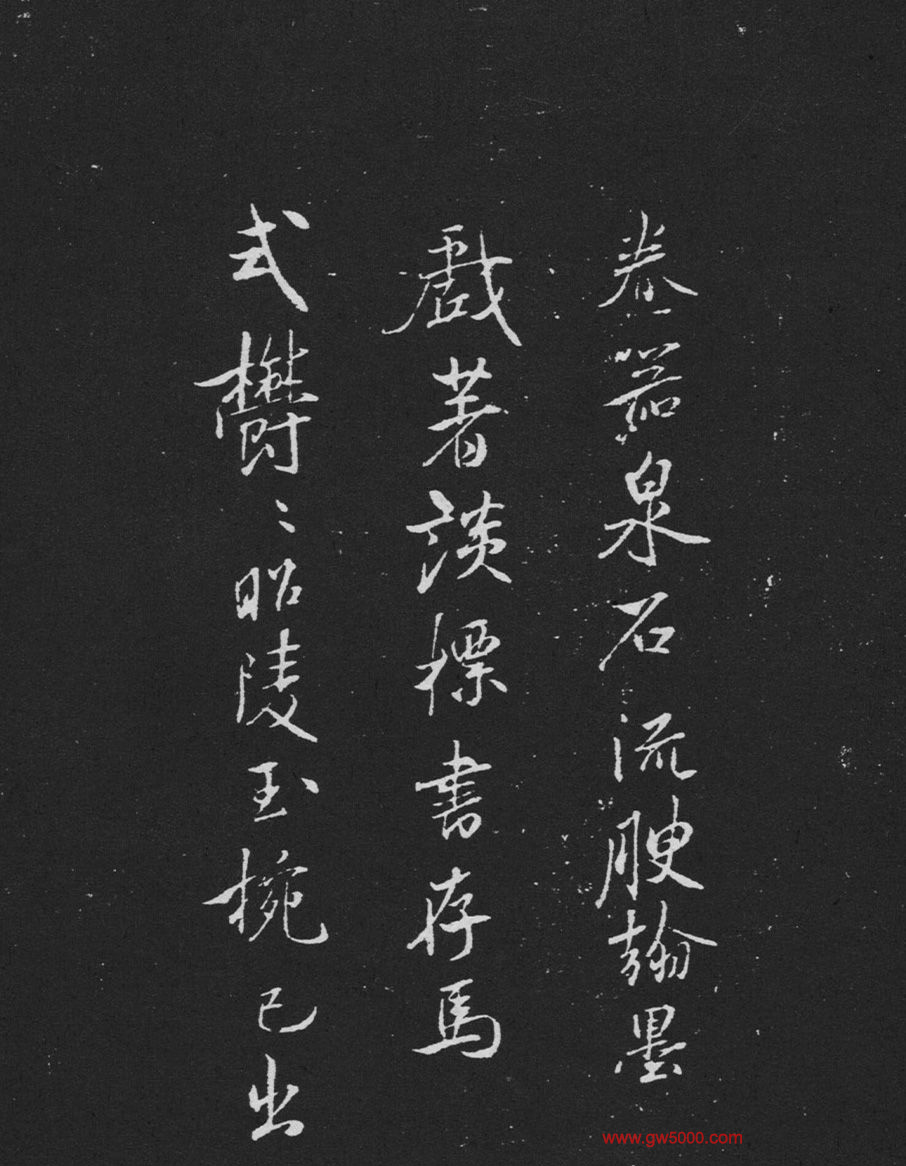 養器泉石流腴翰墨
戲著談標書存馬
式鬱〻昭陵玉椀已出
www.gw5000.com